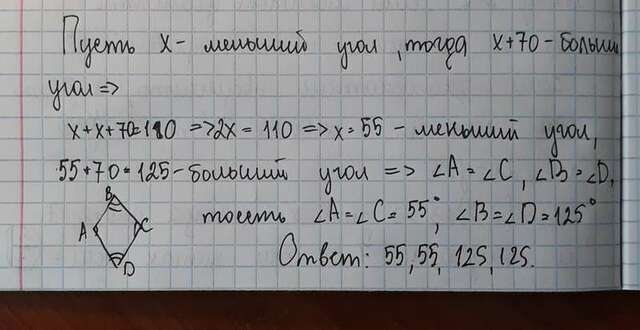 Пусть x - меньший угол, тогда x+70 - больши
угол =>
x+x+70=180 => 2x = 110 => x = 55 - меньший угол,
55+70=125 - больший угол => ∠A=∠C, ∠B=∠D,
B
A
C
D
тоесть ∠A=∠C=55°, ∠B=∠D=125°
Ответ: 55, 55, 125, 125.